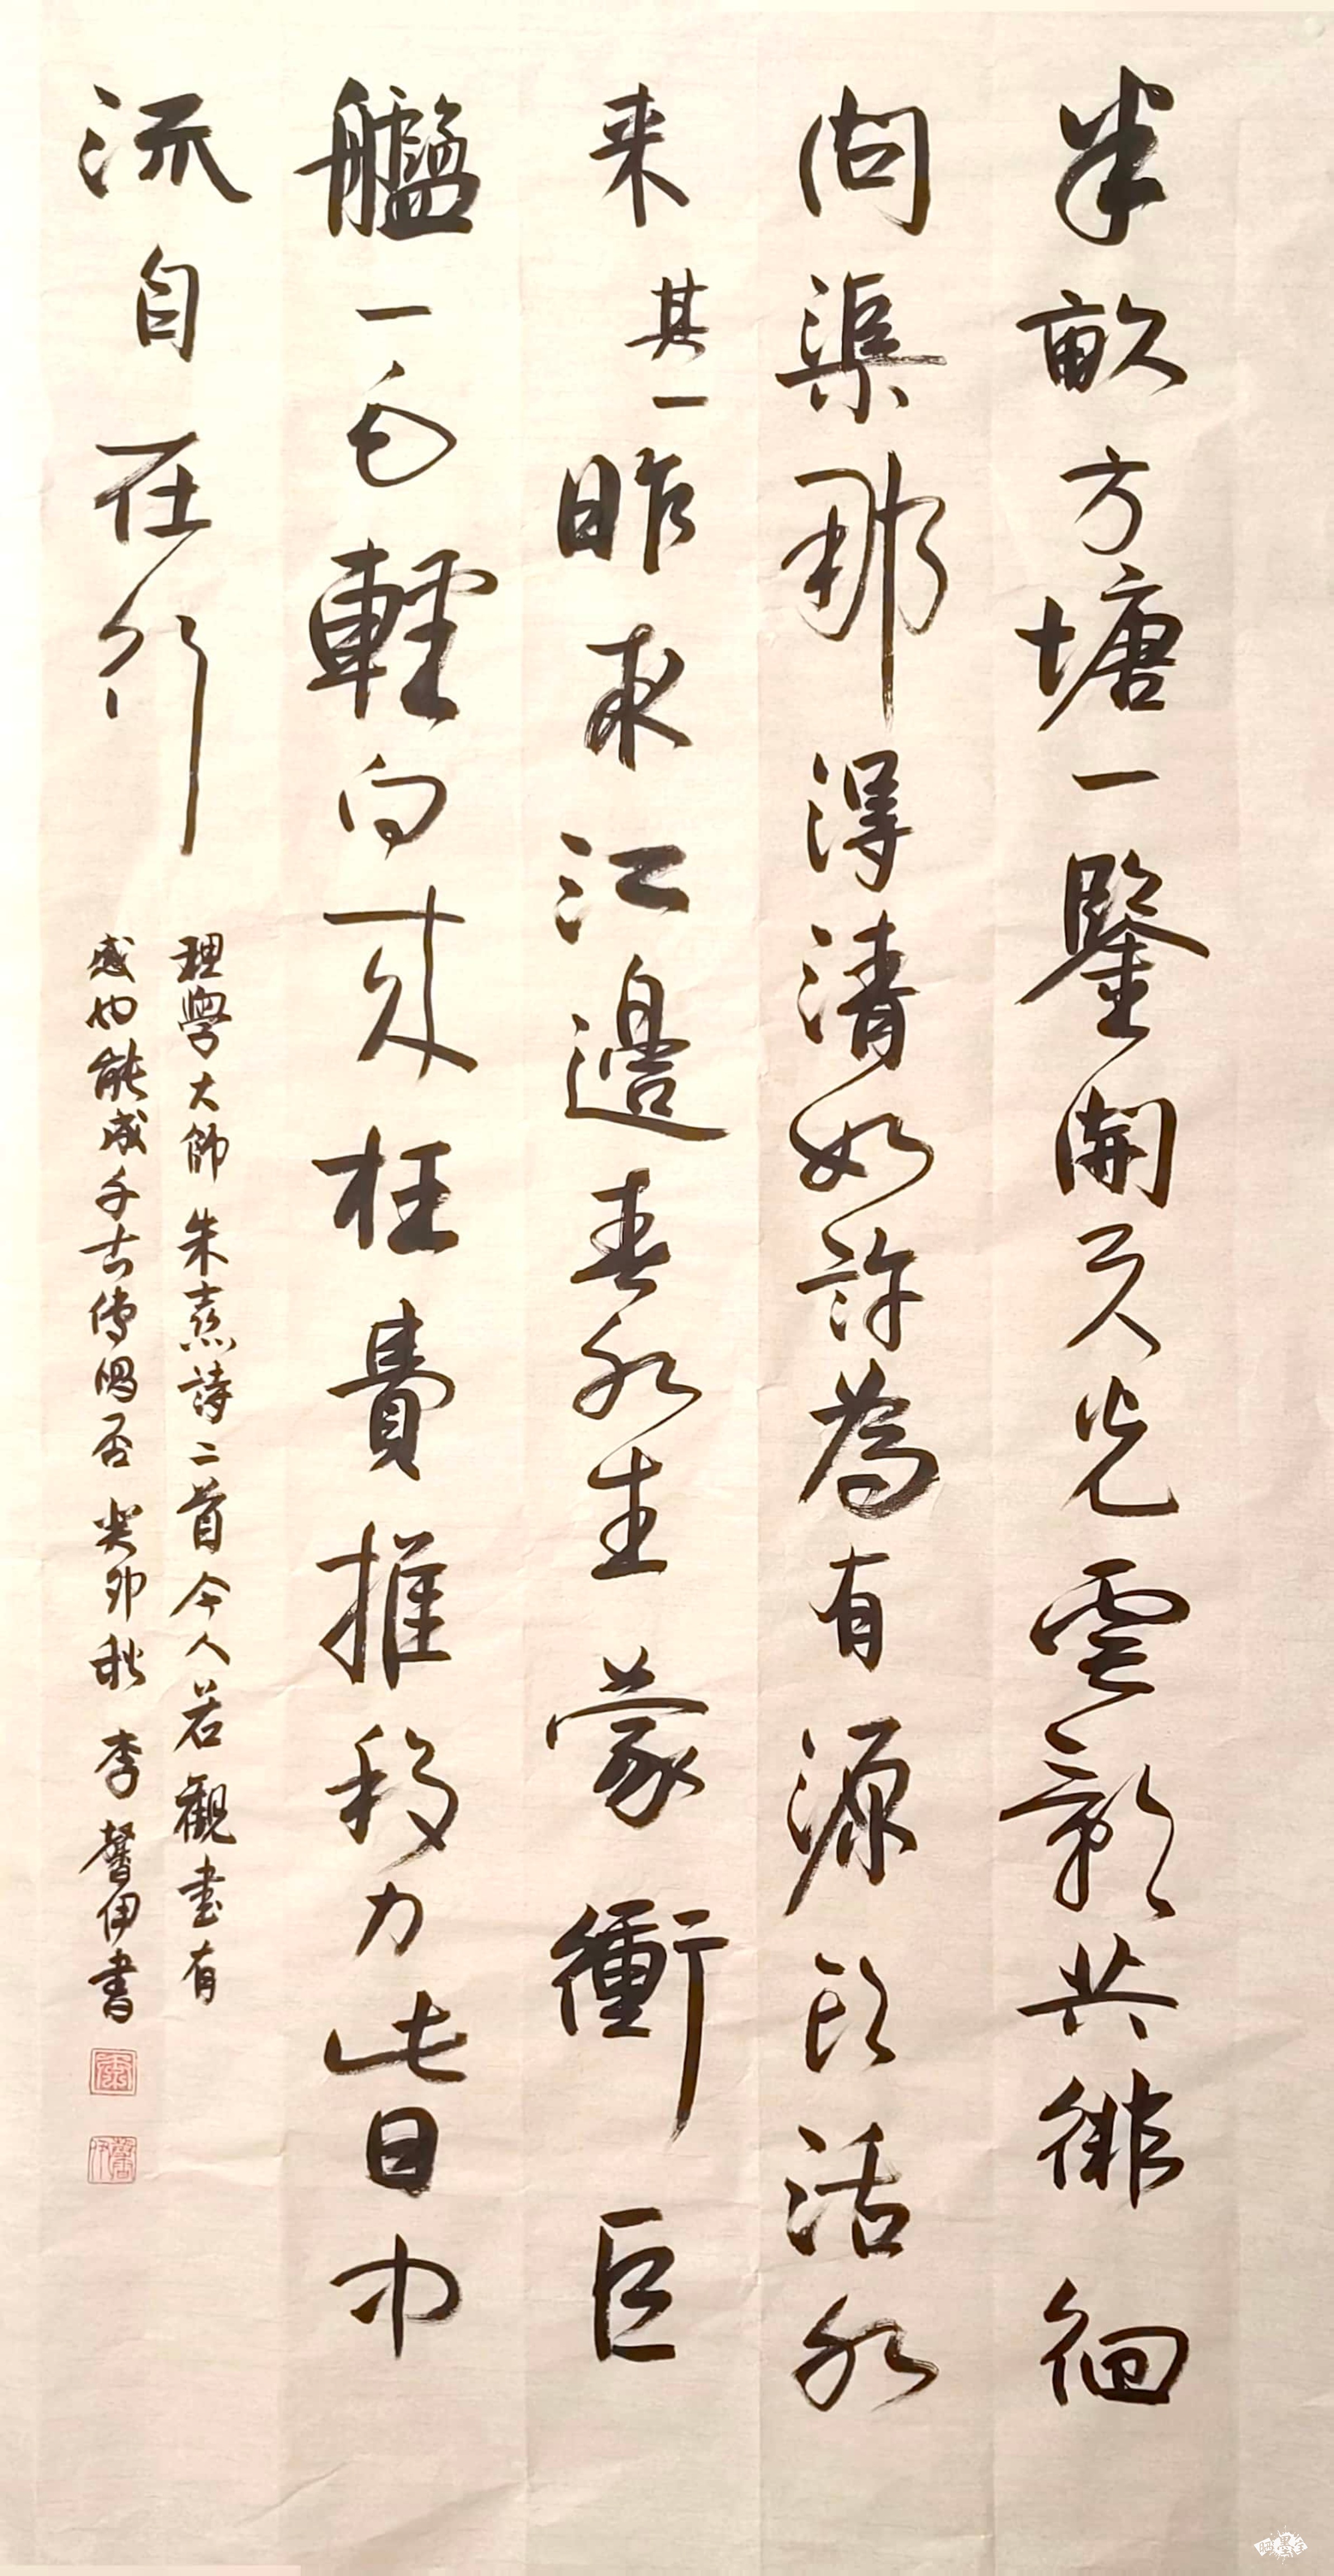 半畝方塘一鑒開天光雲影共徘徊
問渠那得清如許為有源頭活水
来其一昨夜江邊春水生蒙衝巨
艦一毛輕向来枉費推移力此日中
流自在行
理學大師朱熹詩二首今人若觀書有
感也能成千古傳唱否癸卯秋李馨伊書